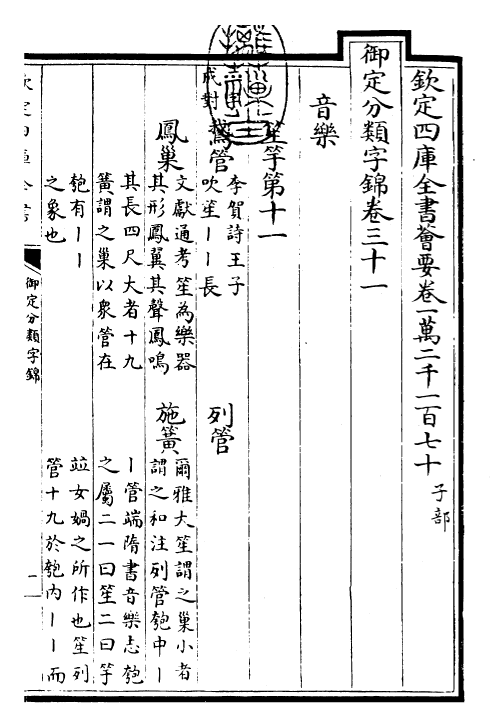 欽定四庫全書薈要卷一萬二千一百七十 子部
御定分類字錦卷三十一
音樂
笙竽第十一
成對
鵞管 李賀詩王子
吹笙丨丨長
列管
鳳巢 文獻通考笙為樂器
其形鳳翼其聲鳳鳴
其長四尺大者十九
簧謂之巢以衆管在
匏有丨丨
之象也
施簧 爾雅大笙謂之巢小者
謂之和注列管匏中丨
丨管端隋書音樂志匏
之屬二一曰笙二曰竽
竝女媧之所作也笙列
管十九於匏內丨丨而
御定分類字錦
一